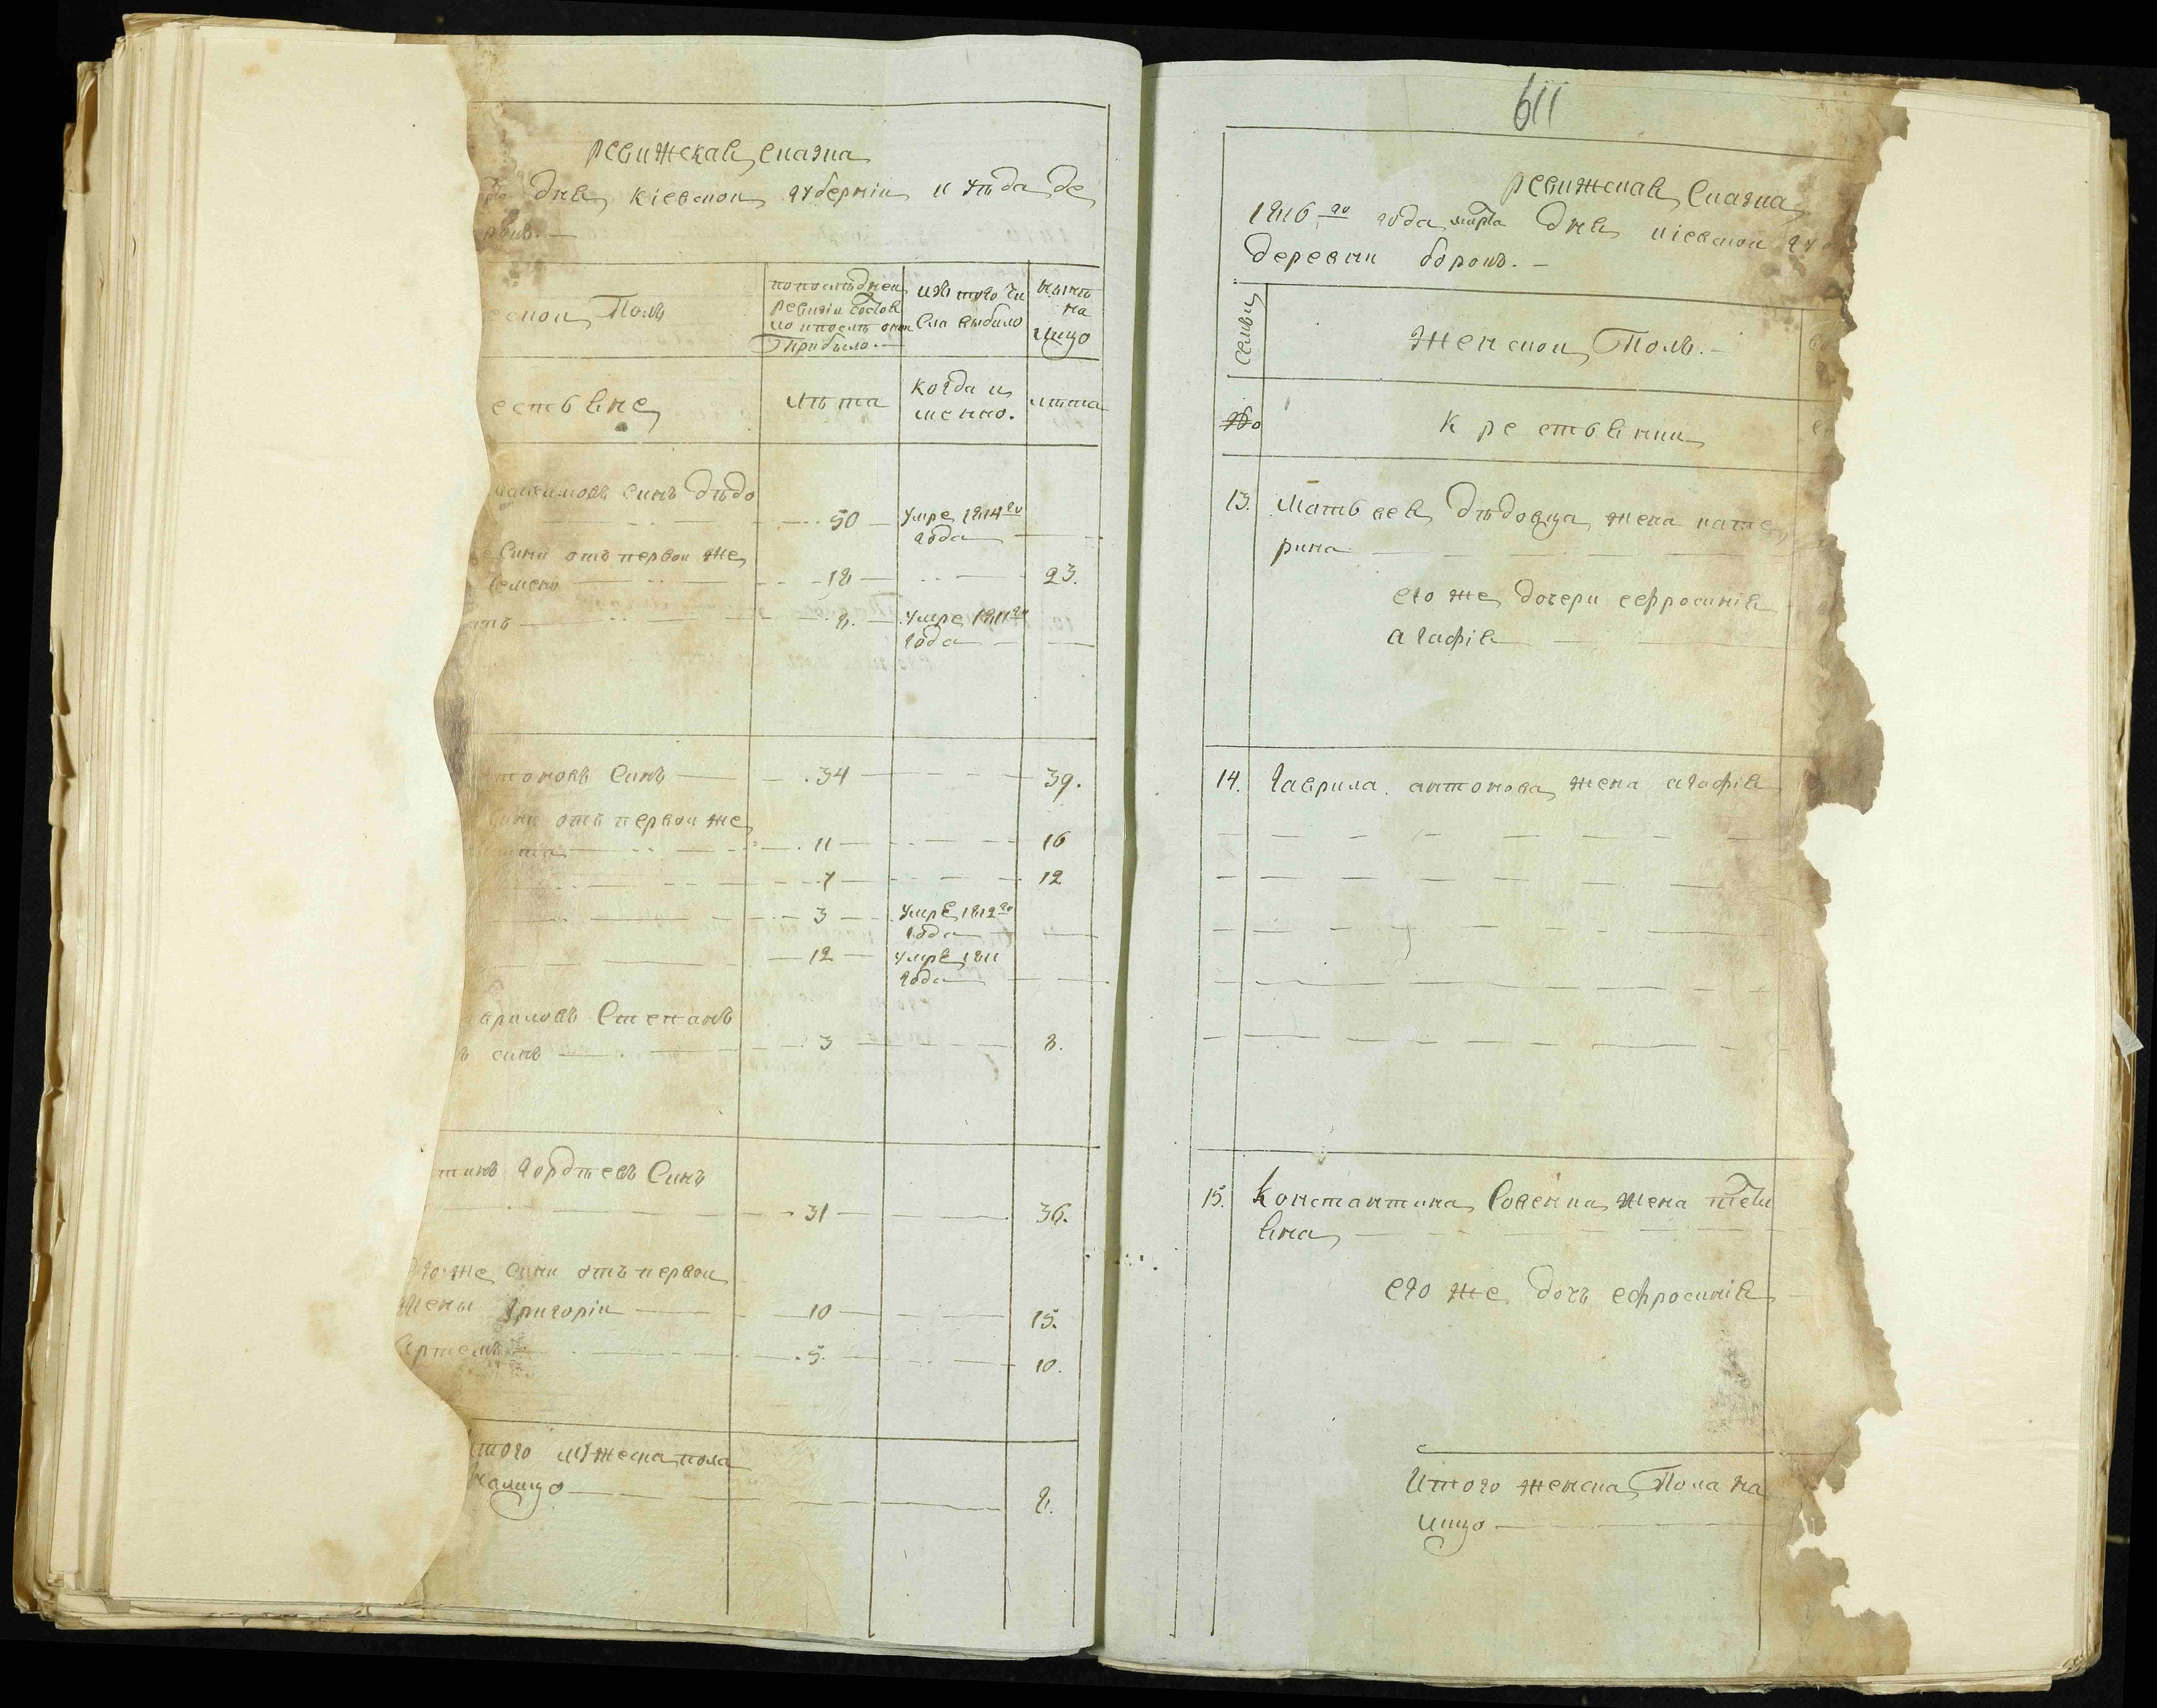 ревижскаѧ сказка
днѧ кіевской губерніи и уѣзда де
еской Полъ
попослѣдней
ревизіи состоѧ
ло и послѣ оной
Прибыло. —
изъ того чи
сла выбыло
нынѣ
на
лицо
естьѧне
лѣта
когда и
менно.
лѣта
максимовъ синъ дѣдо
50
умре 1814го
года
сини отъ первой же
семенъ
18
23.
8.
умре 1811го
года
тоновъ синъ
34
39.
сини отъ первой же
11
16
7
12
3
умре 1812го
года
12
умре 1811
года
авриловъ степанъ
ъ синъ
3
8.
тинъ гордѣевъ синъ
31
36.
его же сини отъ первой
жены григорій
10
15.
артемъ
5.
10.
итого мужеска пола
налицо
8.
611
ревижскаѧ сказка
1816го года марта днѧ кіевской гу
деревни борокъ. —
семьи
женской Полъ. —
№
крестьѧнки
13. матьвеѧ дѣдовца жена кате
рина
его же дочери ефросиніѧ
агафіѧ
14. гаврила антонова жена агафіѧ
15. константина совенка жена
ѧна
его же дочъ ефросиніѧ
Итого женска Пола на
лицо